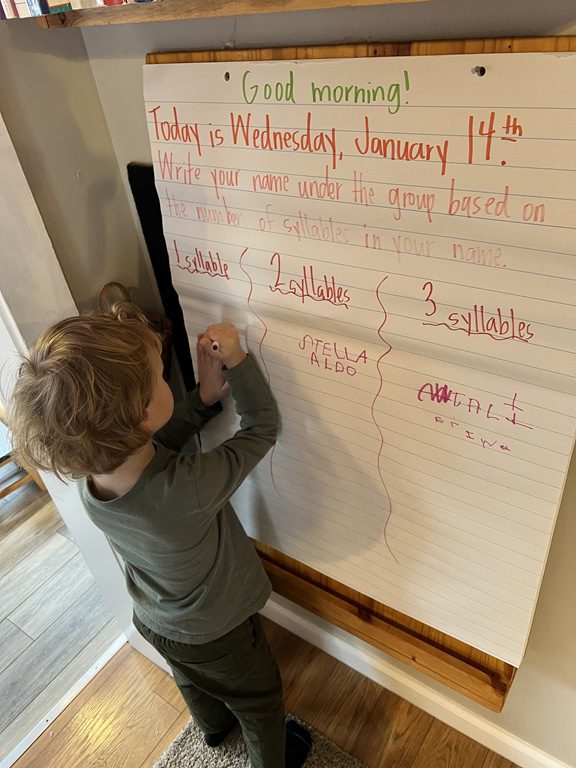 Good morning!
Today is Wednesday, January 14th.
Write your name under the group based on
the number of syllables in your name.
1 syllable
2 syllables
3 syllables
STELLA
ALDO